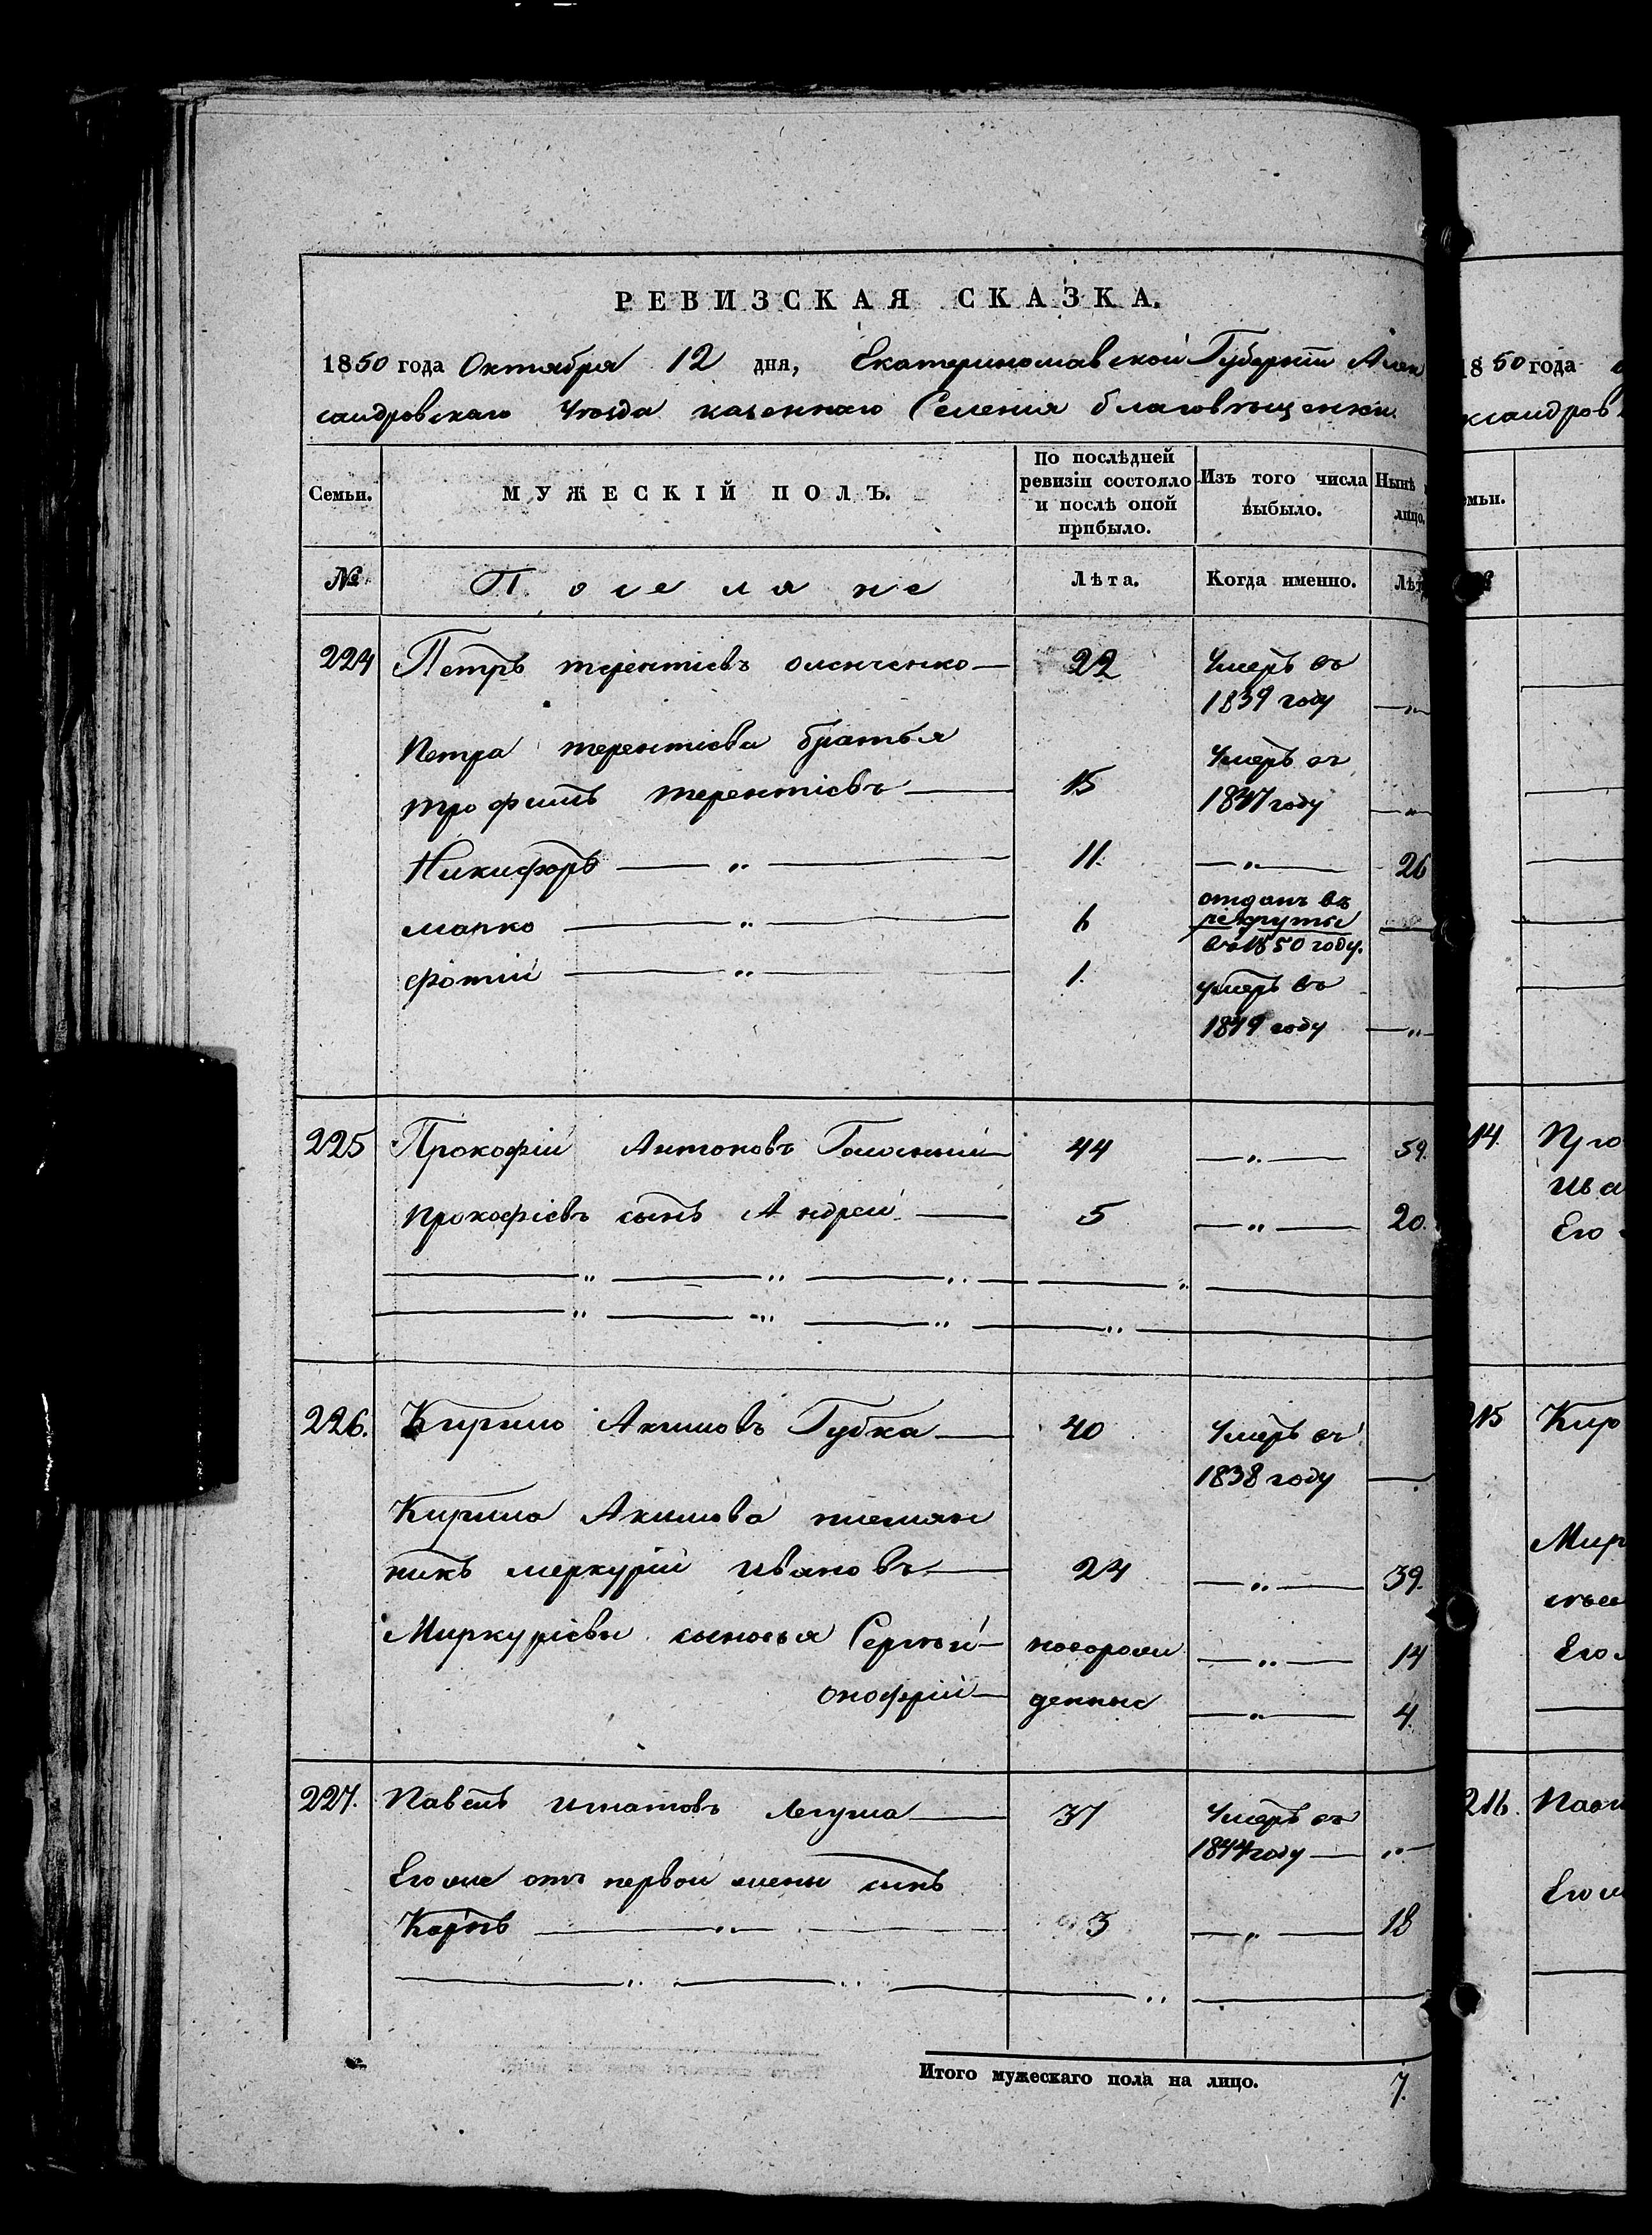 РЕВИЗСКАЯ СКАЗКА.
1850 года Октября 12 дня, Екатеринославской Губернїи Алек
сандровскаго Уѣзда казеннаго Селенія благовѣщенки
Семьи. МУЖЕСКІЙ ПОЛЪ. По послѣдней ревизіи состояло и послѣ оной прибыло. Изъ того числа выбыло. Нынѣ лицо.
№ Поселяне Лѣта. Когда именно. Лѣт
224 Петръ терентіевъ оленченко — 22 Умеръ въ
1839 году — „ —
Петра терентіева братья
трофимъ терентіевъ — 15 Умеръ въ
1847 году — „ —
Никифоръ — „ — 11. — „ — 26
марко — „ — 6 отданъ въ
рекруты
въ 1850 году.
фотій — „ — 1. умеръ въ
1849 году — „ —
225 Прокофій Антоновъ — 44 — „ — 59.
прокофіевъ сынъ Андрей — 5 — „ — 20.
226. Кирило Акимовъ Губка — 40 Умеръ въ
1838 году —
Кирила Акимова племян
никъ меркурій Ивановъ — 24 — „ — 39.
Миркуріевы сыновья Сергѣй — новорож — „ — 14
онофрій — денные — „ — 4.
227. Павелъ Игнатовъ Легуша — 37 Умеръ въ
1844 году — „ —
Его же отъ первой жены сынъ
Карпъ — „ — 3 — „ — 18
Итого мужескаго пола на лицо. 7.
1850 года
ксандров
емьи.
№
214. Про
Ива
Его
215 Кир
Мир
Его
216. Павл
Его